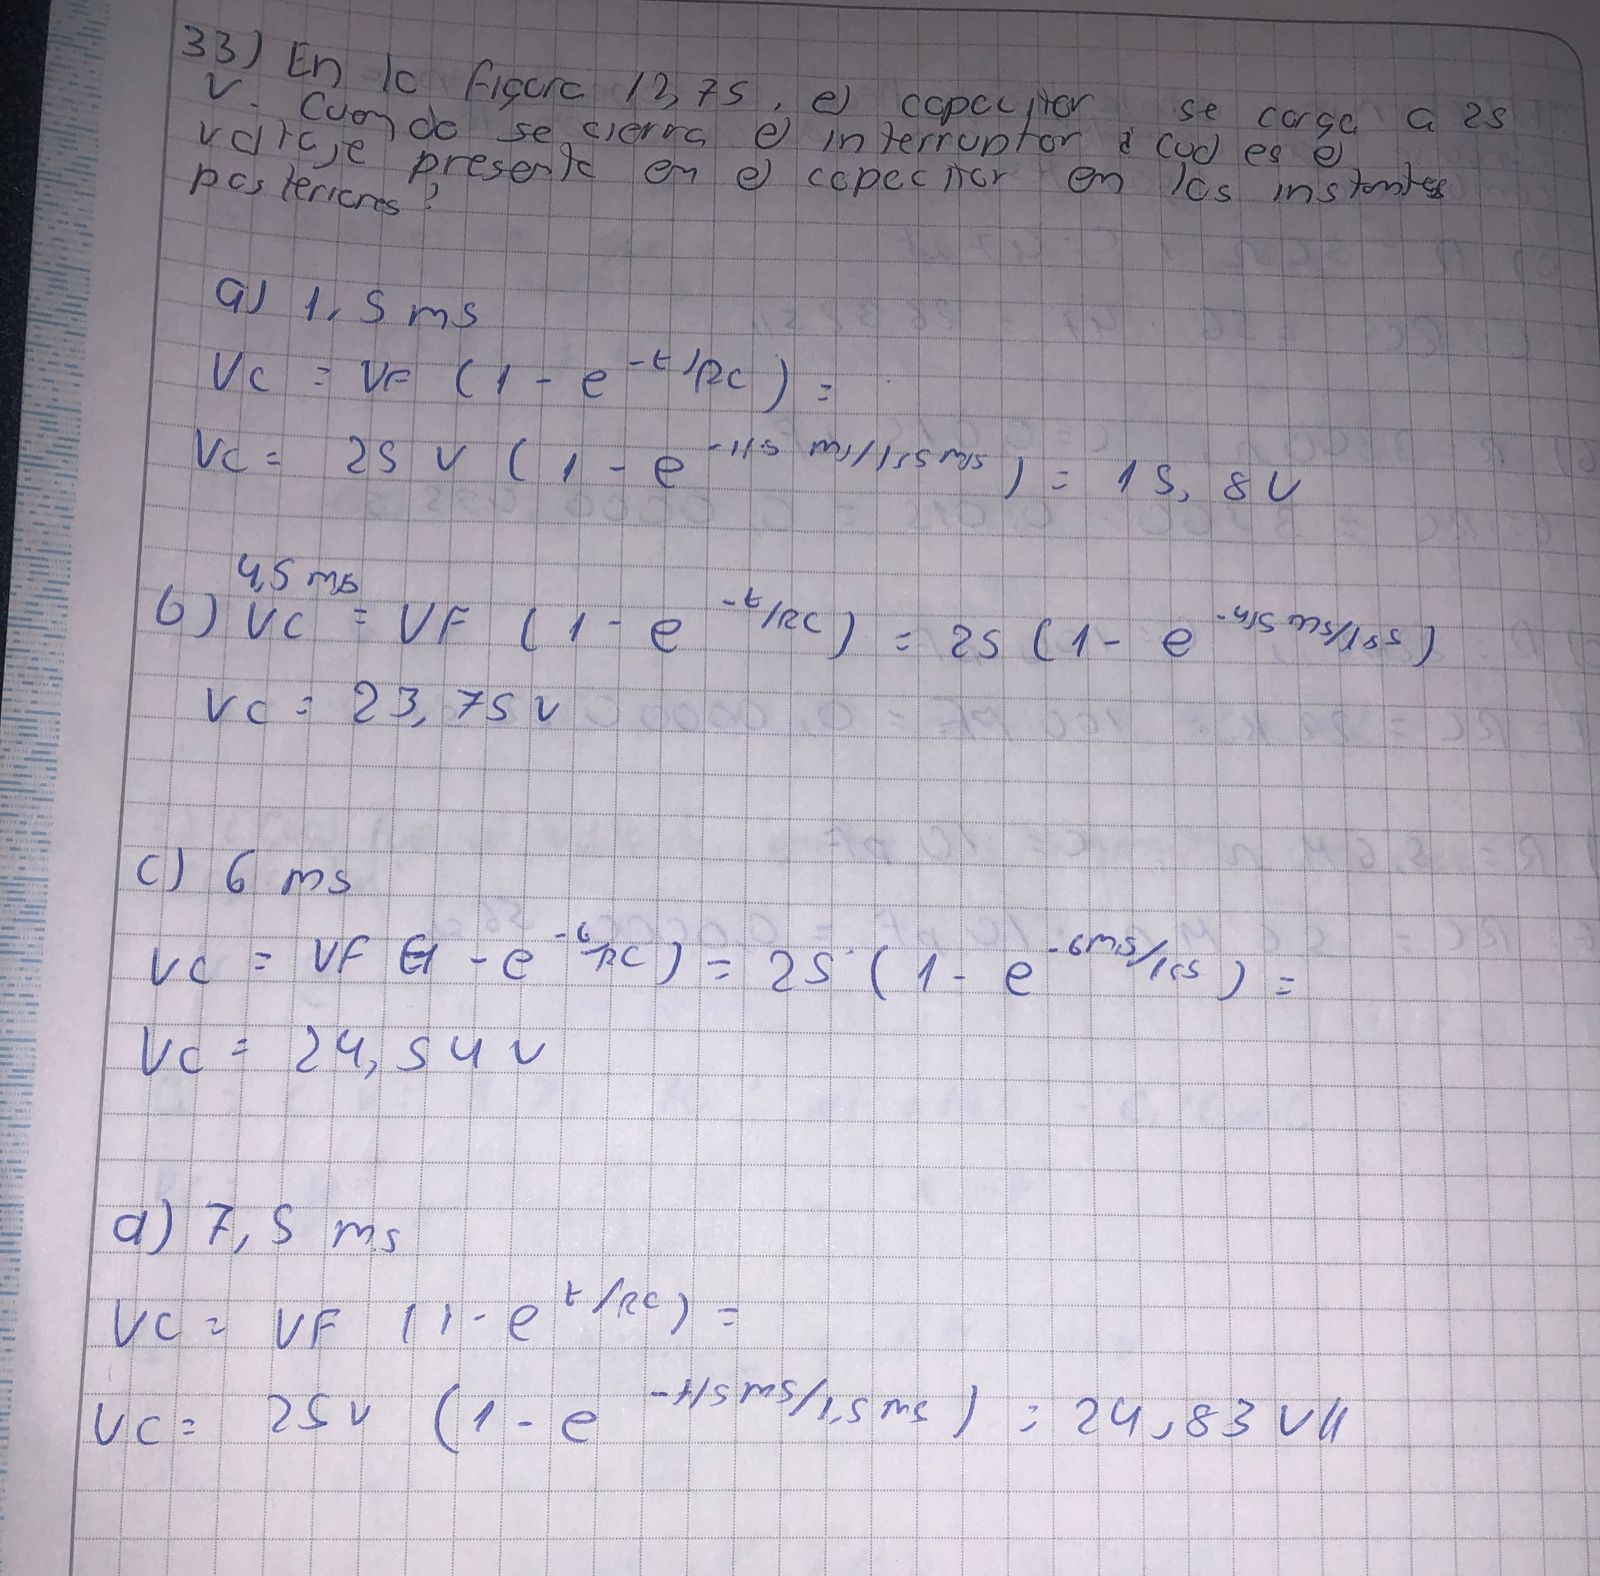 33) En la figura 12,75, el capacitor se carga a 25
V. Cuando se cierra el interruptor ¿ Cual es el
voltaje presente en el capacitor en los instantes
posteriores?
a) 1,5 ms
VC = VF (1 - e^-t/RC) =
VC = 25 V (1 - e^-1,5 ms/1,5 ms) = 15,8 V
4,5 ms
b) VC = VF (1 - e^-t/RC) = 25 (1 - e^-4,5 ms/1,5s)
VC = 23,75 V
c) 6 ms
VC = VF (1 - e^-t/RC) = 25 (1 - e^-6ms/1,5s) =
VC = 24,54 V
d) 7,5 ms
VC = VF (1 - e^t/RC) =
VC = 25 V (1 - e^-7,5 ms/1,5 ms) = 24,83 V//